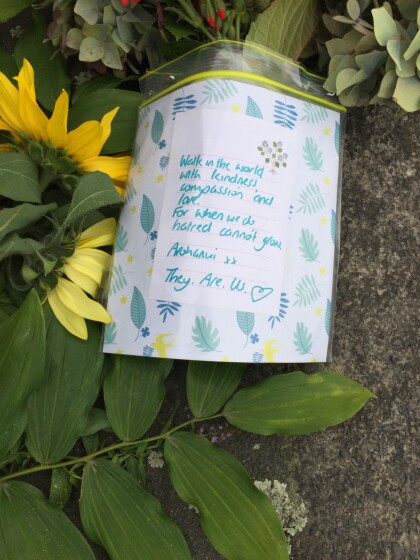 Walk in the world
with kindness,
compassion and
love.
For when we do
hatred cannot grow.
Arohanui xx
They. Are. Us. ♡